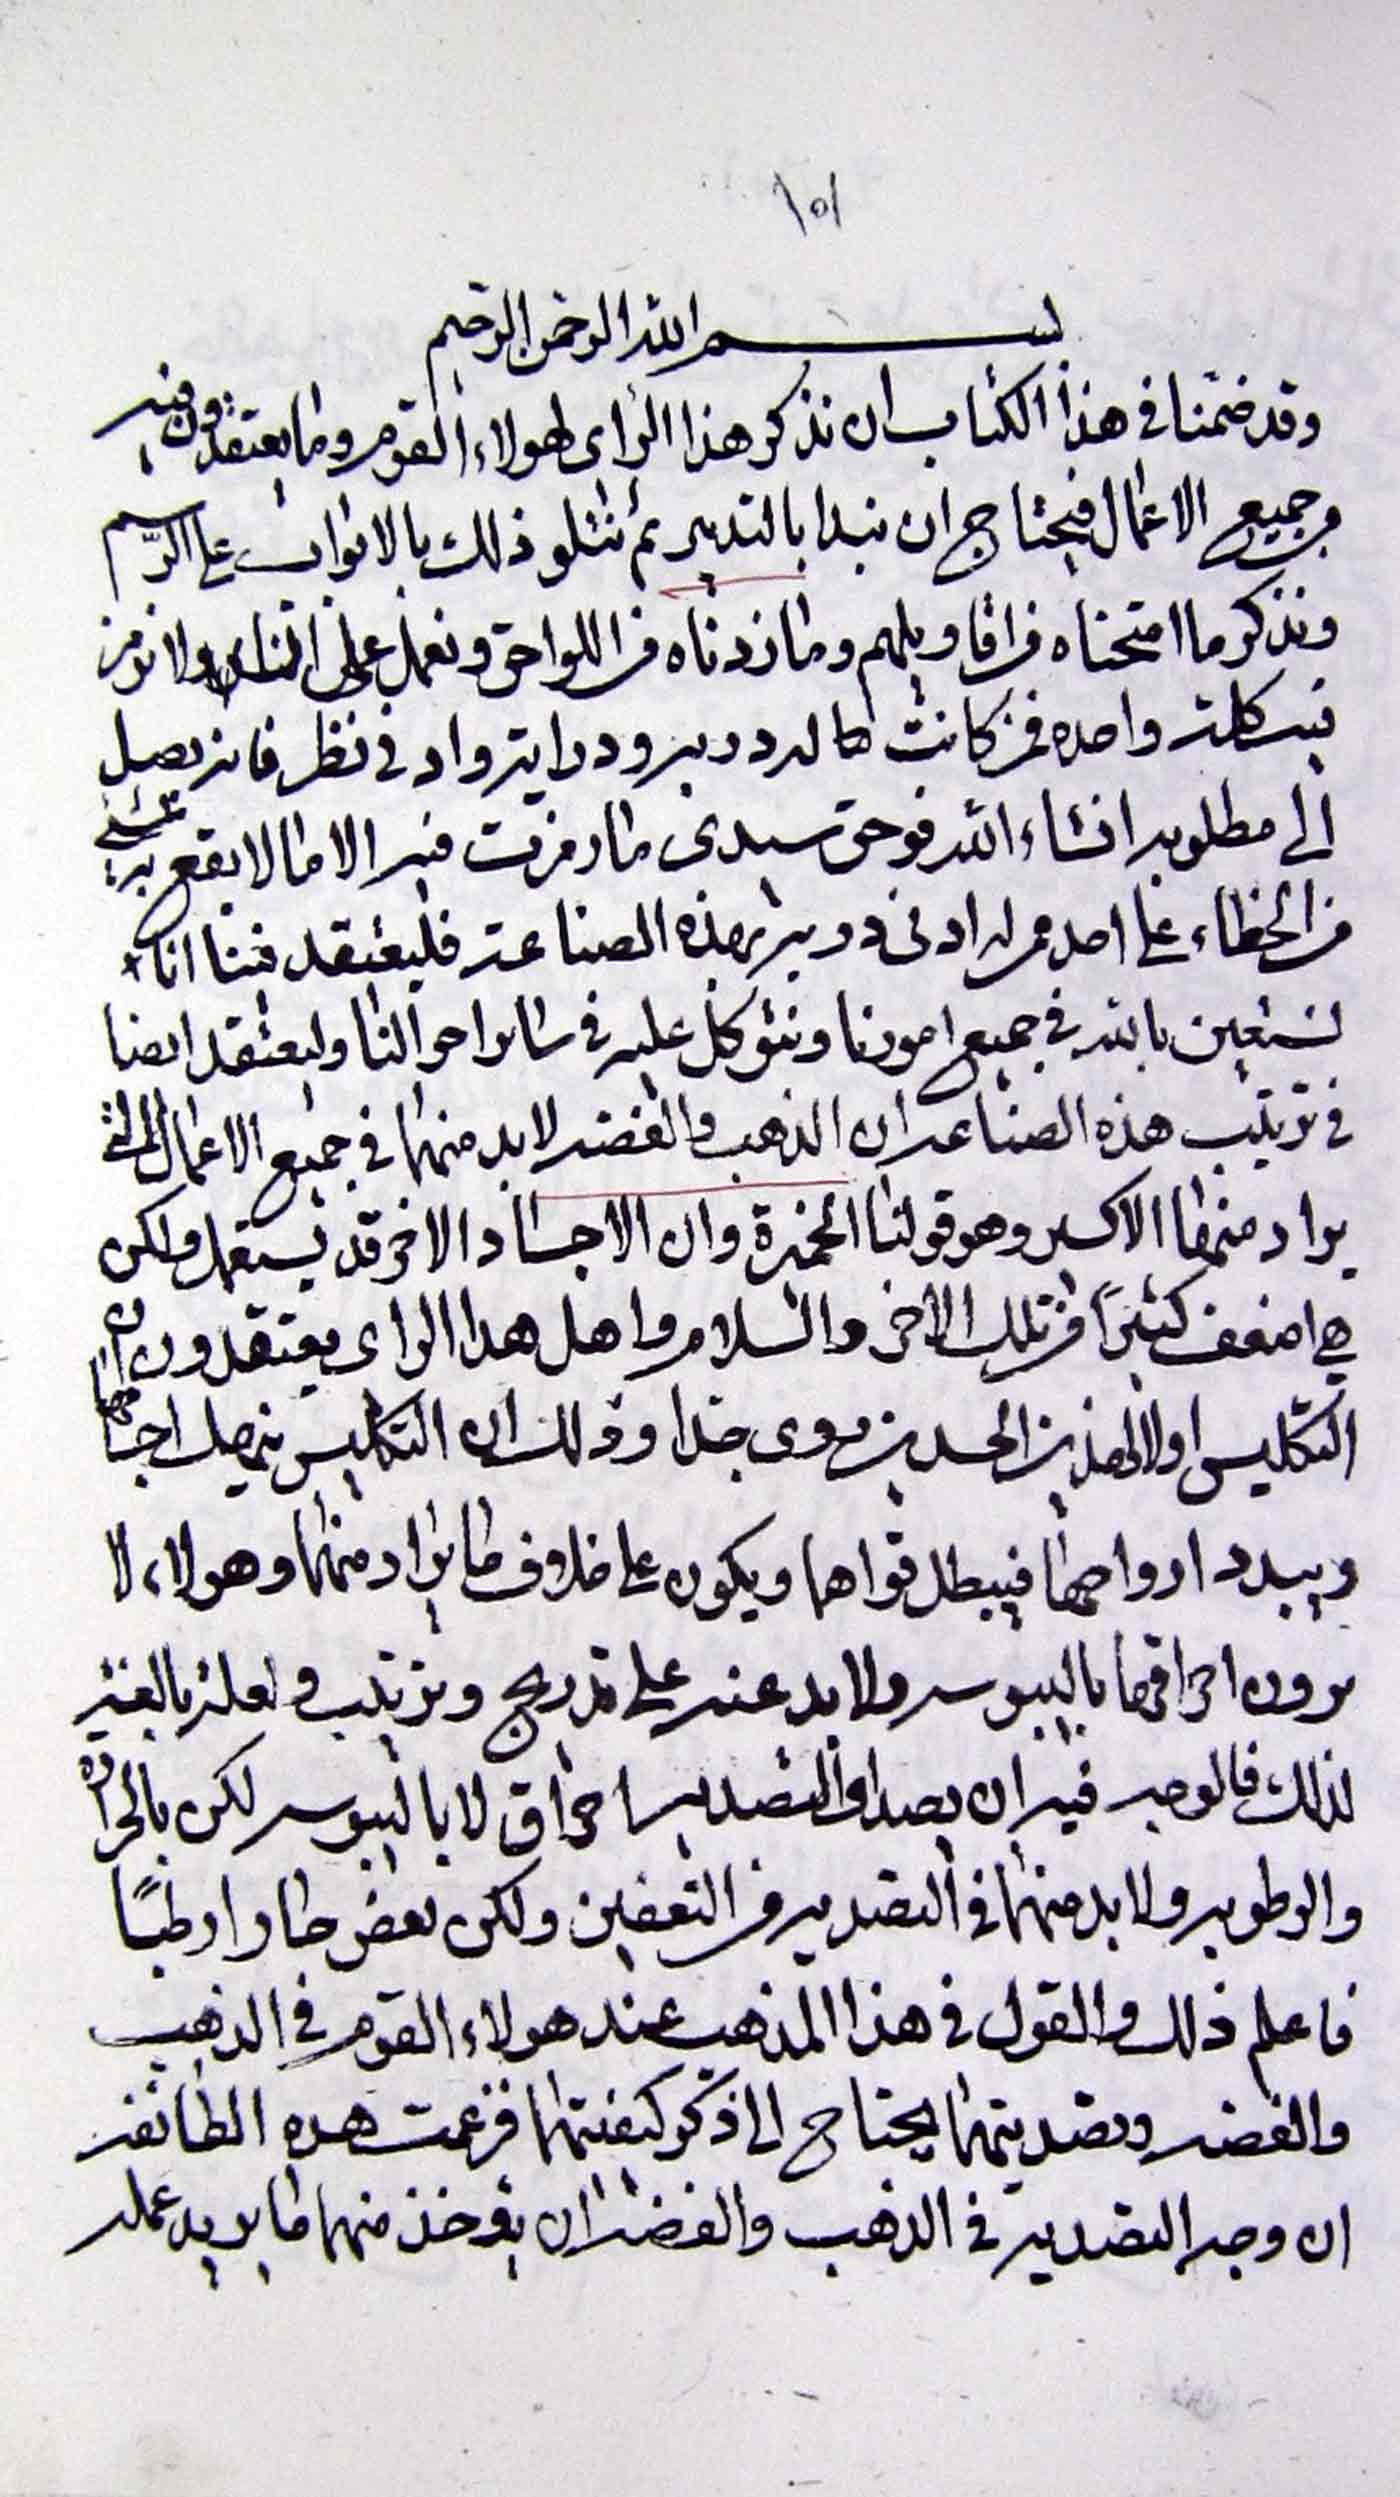 ١٥١
بسم الله الرحمن الرحيم
وقد ضمنا في هذا الكتاب ان نذكر هذا الراى لهولاء القوم وما يعتقدون فيه
من جميع الاعمال فيحتاج ان نبدا بالتدبير ثم نتلو ذلك بالابواب على الرسم
ونذكر ما امتحناه من اقاويلهم وما زدناه من اللواحق ونعمل على ان لا نرمز
فيه كلمة واحده فمن كانت له دربه ودراية واد فى نظر فانه يصل
الى مطلوبه انشاء الله فوحق سيدى ما رمزت فيه الا ما لا يقع به
من الخطاء على احد ممن له ادنى دربة بهذه الصناعة فليعتقد فينا انا
نستعين بالله في جميع امورنا ونتوكل عليه في سائر احوالنا وليعتقد ايضا
في ترتيب هذه الصناعه ان الذهب والفضه لا بد منهما في جميع الاعمال التى
يراد منها الاكسير وهو قولنا الخميرة وان الاجساد الاخر قد تستعمل ولكن
هي اضعف كثيرًا من تلك الاخر والسلام واهل هذا الراى يعتقدون ان
التكليس اولا لهذين الجسدين ردى جدا وذلك ان التكليس يمحل اجسامهما
ويبدد ارواحهما فيبطل قواهما ويكون على خلاف ما يراد منهما وهولاء لا
يرون احراقهما باليبوسه ولا بد عنه على تدريج وترتيب
لذلك فالوجه فيه ان يصدا والتصديه احراق لا باليبوسه لكن بالحرارة
والرطوبه ولا بد منهما في التصديه من التعفين ولكن بعض حارا رطبًا
فاعلم ذلك والقول في هذا المذهب عند هولاء القوم في الذهب
والفضه وتصديتهما يحتاج الى ذكر كيفيتهما فزعمت هذه الطائفه
ان وجه التصديه في الذهب والفضه ان يؤخذ منهما ما يريد عمله